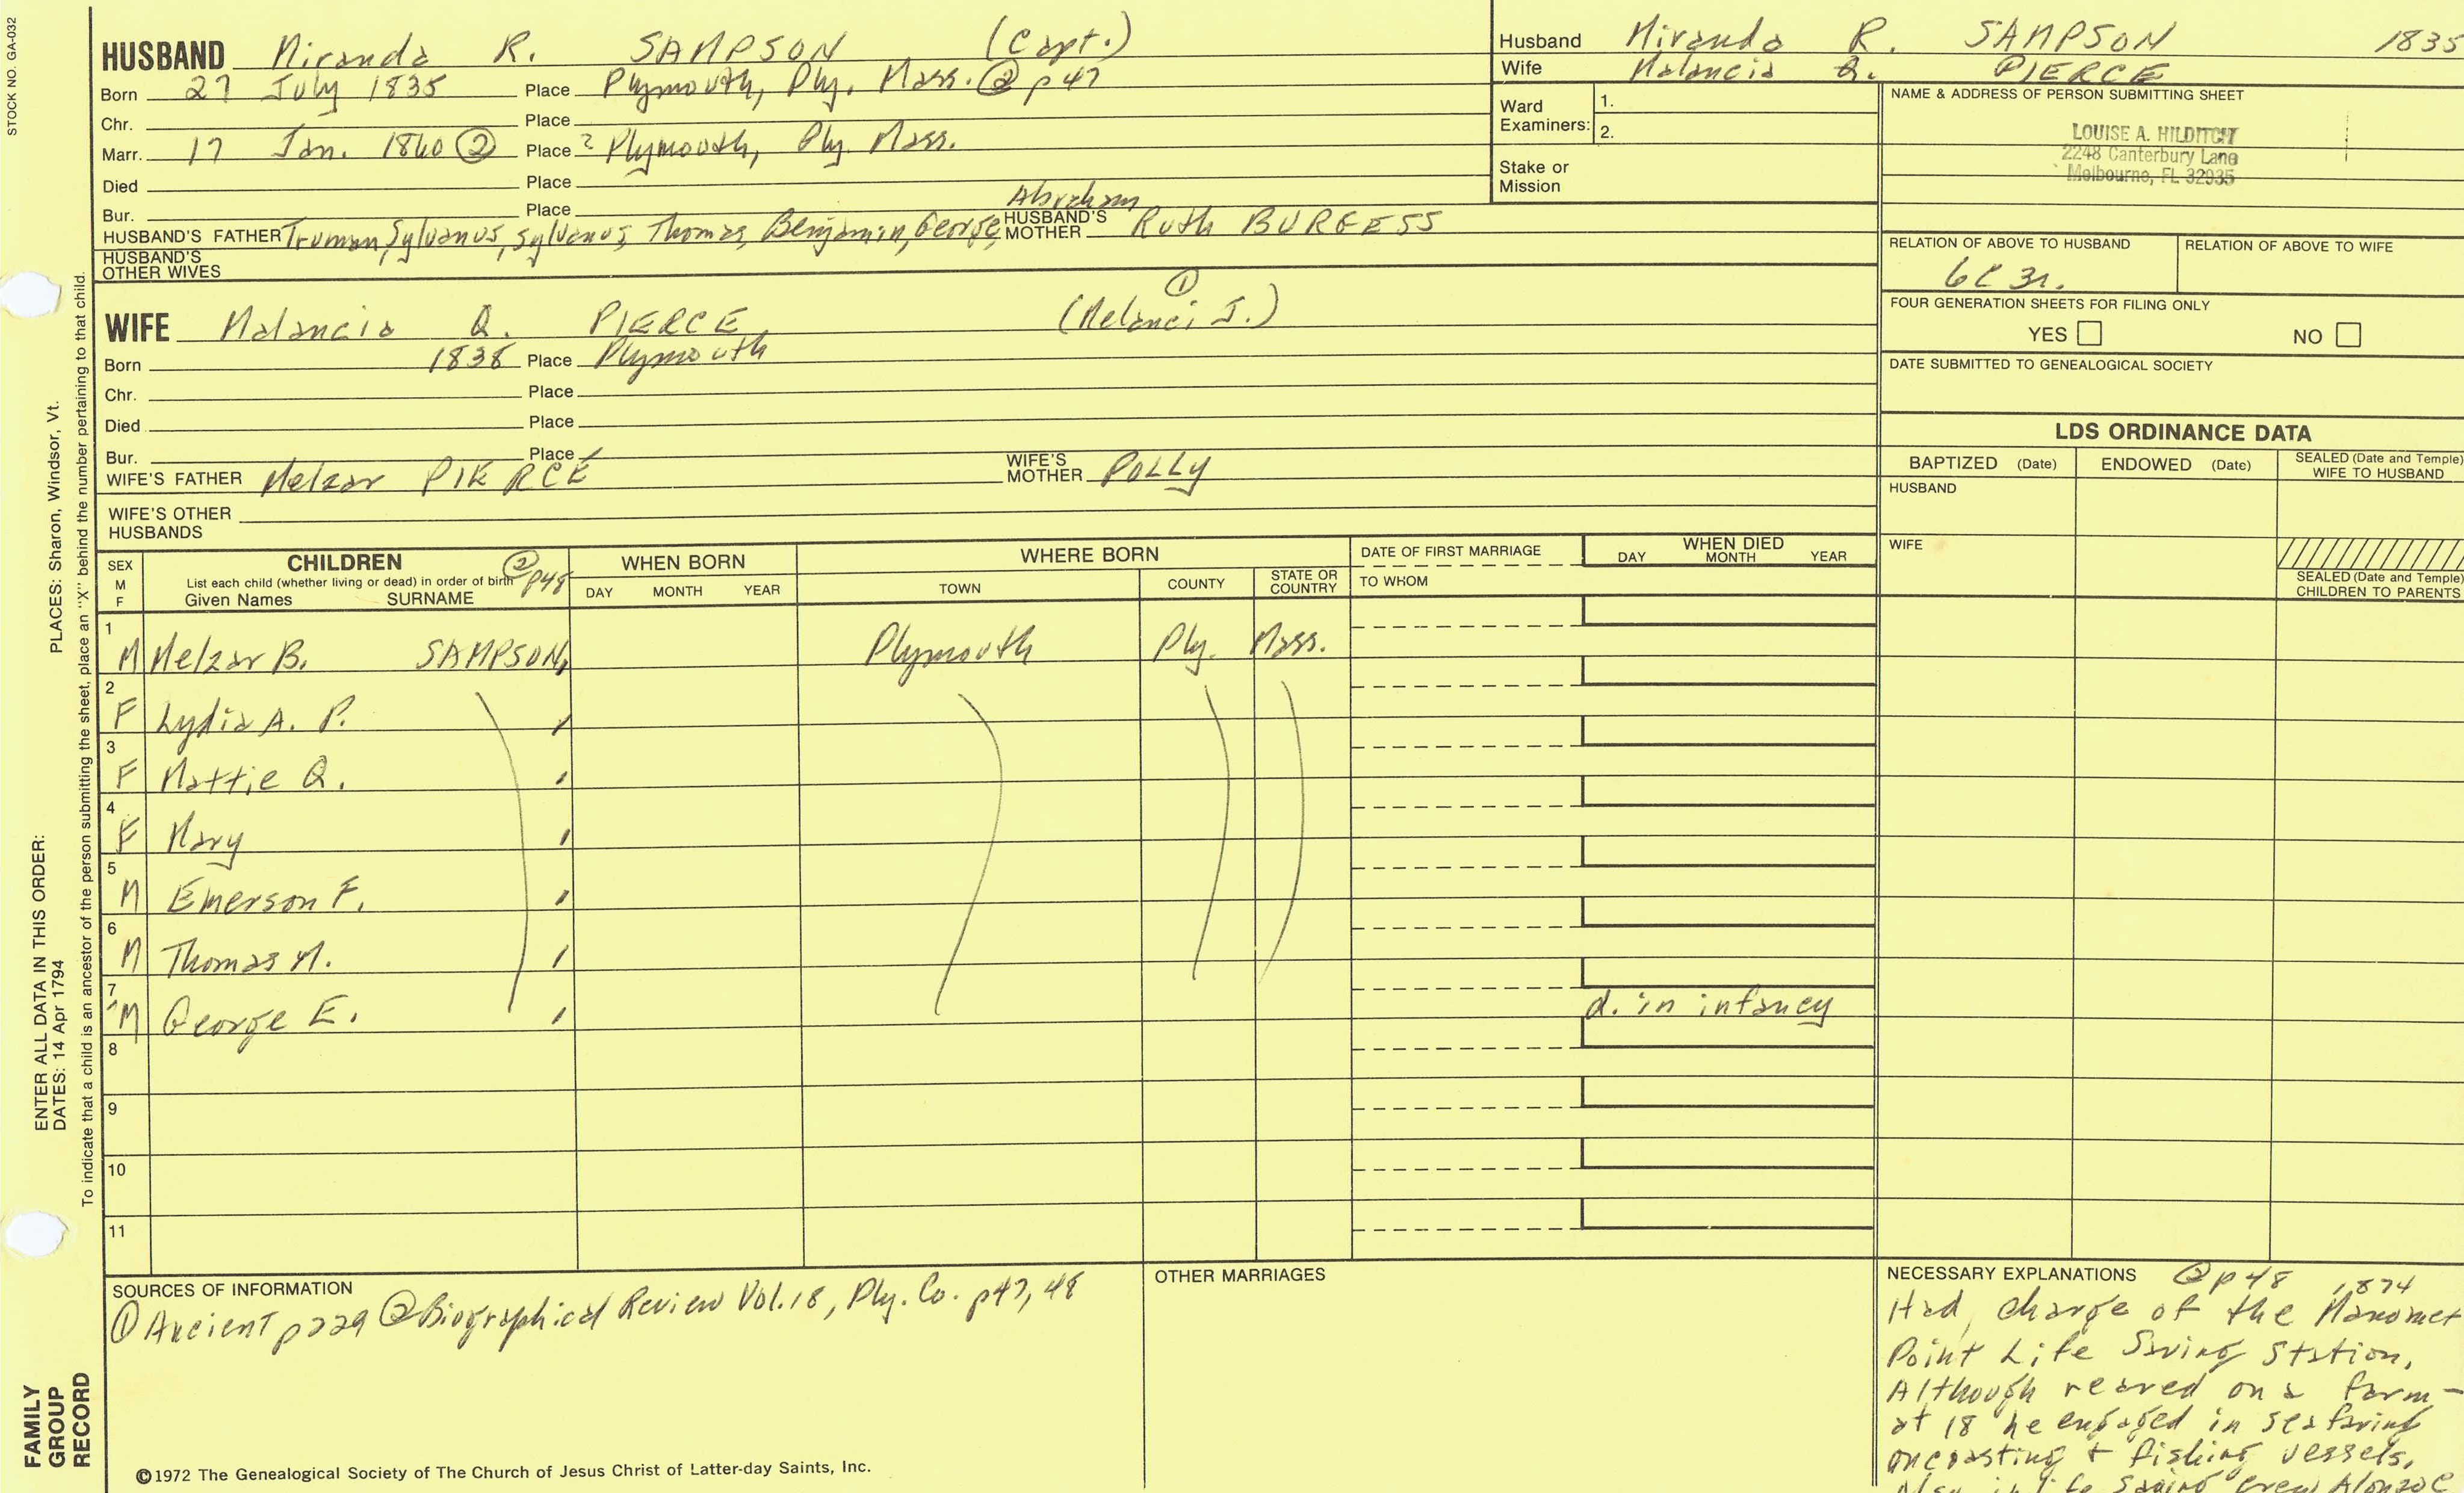 STOCK NO. GA-032
HUSBAND Miranda R. SAMPSON (Capt.)
Born 27 July 1835 Place Plymouth, Ply. Mass. ② p47
Chr. Place
Marr. 17 Jan. 1860 ② Place ? Plymouth, Ply. Mass.
Died Place
Bur. Place
Abraham
HUSBAND'S FATHER Truman, Sylvanus, Sylvanus, Thomas, Benjamin, George, HUSBAND'S MOTHER Ruth BURGESS
HUSBAND'S OTHER WIVES
Husband Miranda R. SAMPSON 1835
Wife Malancia Q. PIERCE
Ward Examiners: 1.
2.
Stake or Mission
NAME & ADDRESS OF PERSON SUBMITTING SHEET
LOUISE A. HILDITCH
2248 Canterbury Lane
Melbourne, FL 32935
RELATION OF ABOVE TO HUSBAND RELATION OF ABOVE TO WIFE
6C 3r.
FOUR GENERATION SHEETS FOR FILING ONLY
YES NO
DATE SUBMITTED TO GENEALOGICAL SOCIETY
①
WIFE Malancia Q. PIERCE (Melanci J.)
Born 1838 Place Plymouth
Chr. Place
Died Place
Bur. Place
WIFE'S FATHER Melzar PIERCE WIFE'S MOTHER POLLY
WIFE'S OTHER HUSBANDS
LDS ORDINANCE DATA
BAPTIZED (Date) ENDOWED (Date) SEALED (Date and Temple) WIFE TO HUSBAND
HUSBAND
WIFE
SEALED (Date and Temple) CHILDREN TO PARENTS
SEX M F
CHILDREN ② p48
List each child (whether living or dead) in order of birth
Given Names SURNAME
WHEN BORN
DAY MONTH YEAR
WHERE BORN
TOWN COUNTY STATE OR COUNTRY
DATE OF FIRST MARRIAGE
TO WHOM
WHEN DIED
DAY MONTH YEAR
1 M Melzar B. SAMPSON, Plymouth Ply. Mass.
2 F Lydia A. P.
3 F Mattie Q.
4 F Mary
5 M Emerson F.
6 M Thomas M.
7 M George E. d. in infancy
8
9
10
11
SOURCES OF INFORMATION
① Ancient p229 ② Biographical Review Vol. 18, Ply. Co. p47, 48
OTHER MARRIAGES
NECESSARY EXPLANATIONS ② p48 1874
Had charge of the Manomet
Point Life Saving Station.
Although reared on a farm-
at 18 he engaged in seafaring
on coasting + fishing vessels.
Also in life saving crew Alonzo C
©1972 The Genealogical Society of The Church of Jesus Christ of Latter-day Saints, Inc.
FAMILY GROUP RECORD
ENTER ALL DATA IN THIS ORDER:
DATES: 14 Apr 1794
PLACES: Sharon, Windsor, Vt.
To indicate that a child is an ancestor of the person submitting the sheet, place an "X" behind the number pertaining to that child.